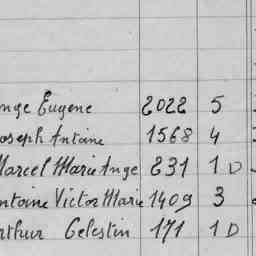 nge Eugene 2022 5
oseph Antoine 1568 4
Marcel Marie Ange 231 1 D
ntoine Victor Marie 1409 3
rthur Celestin 171 1 D